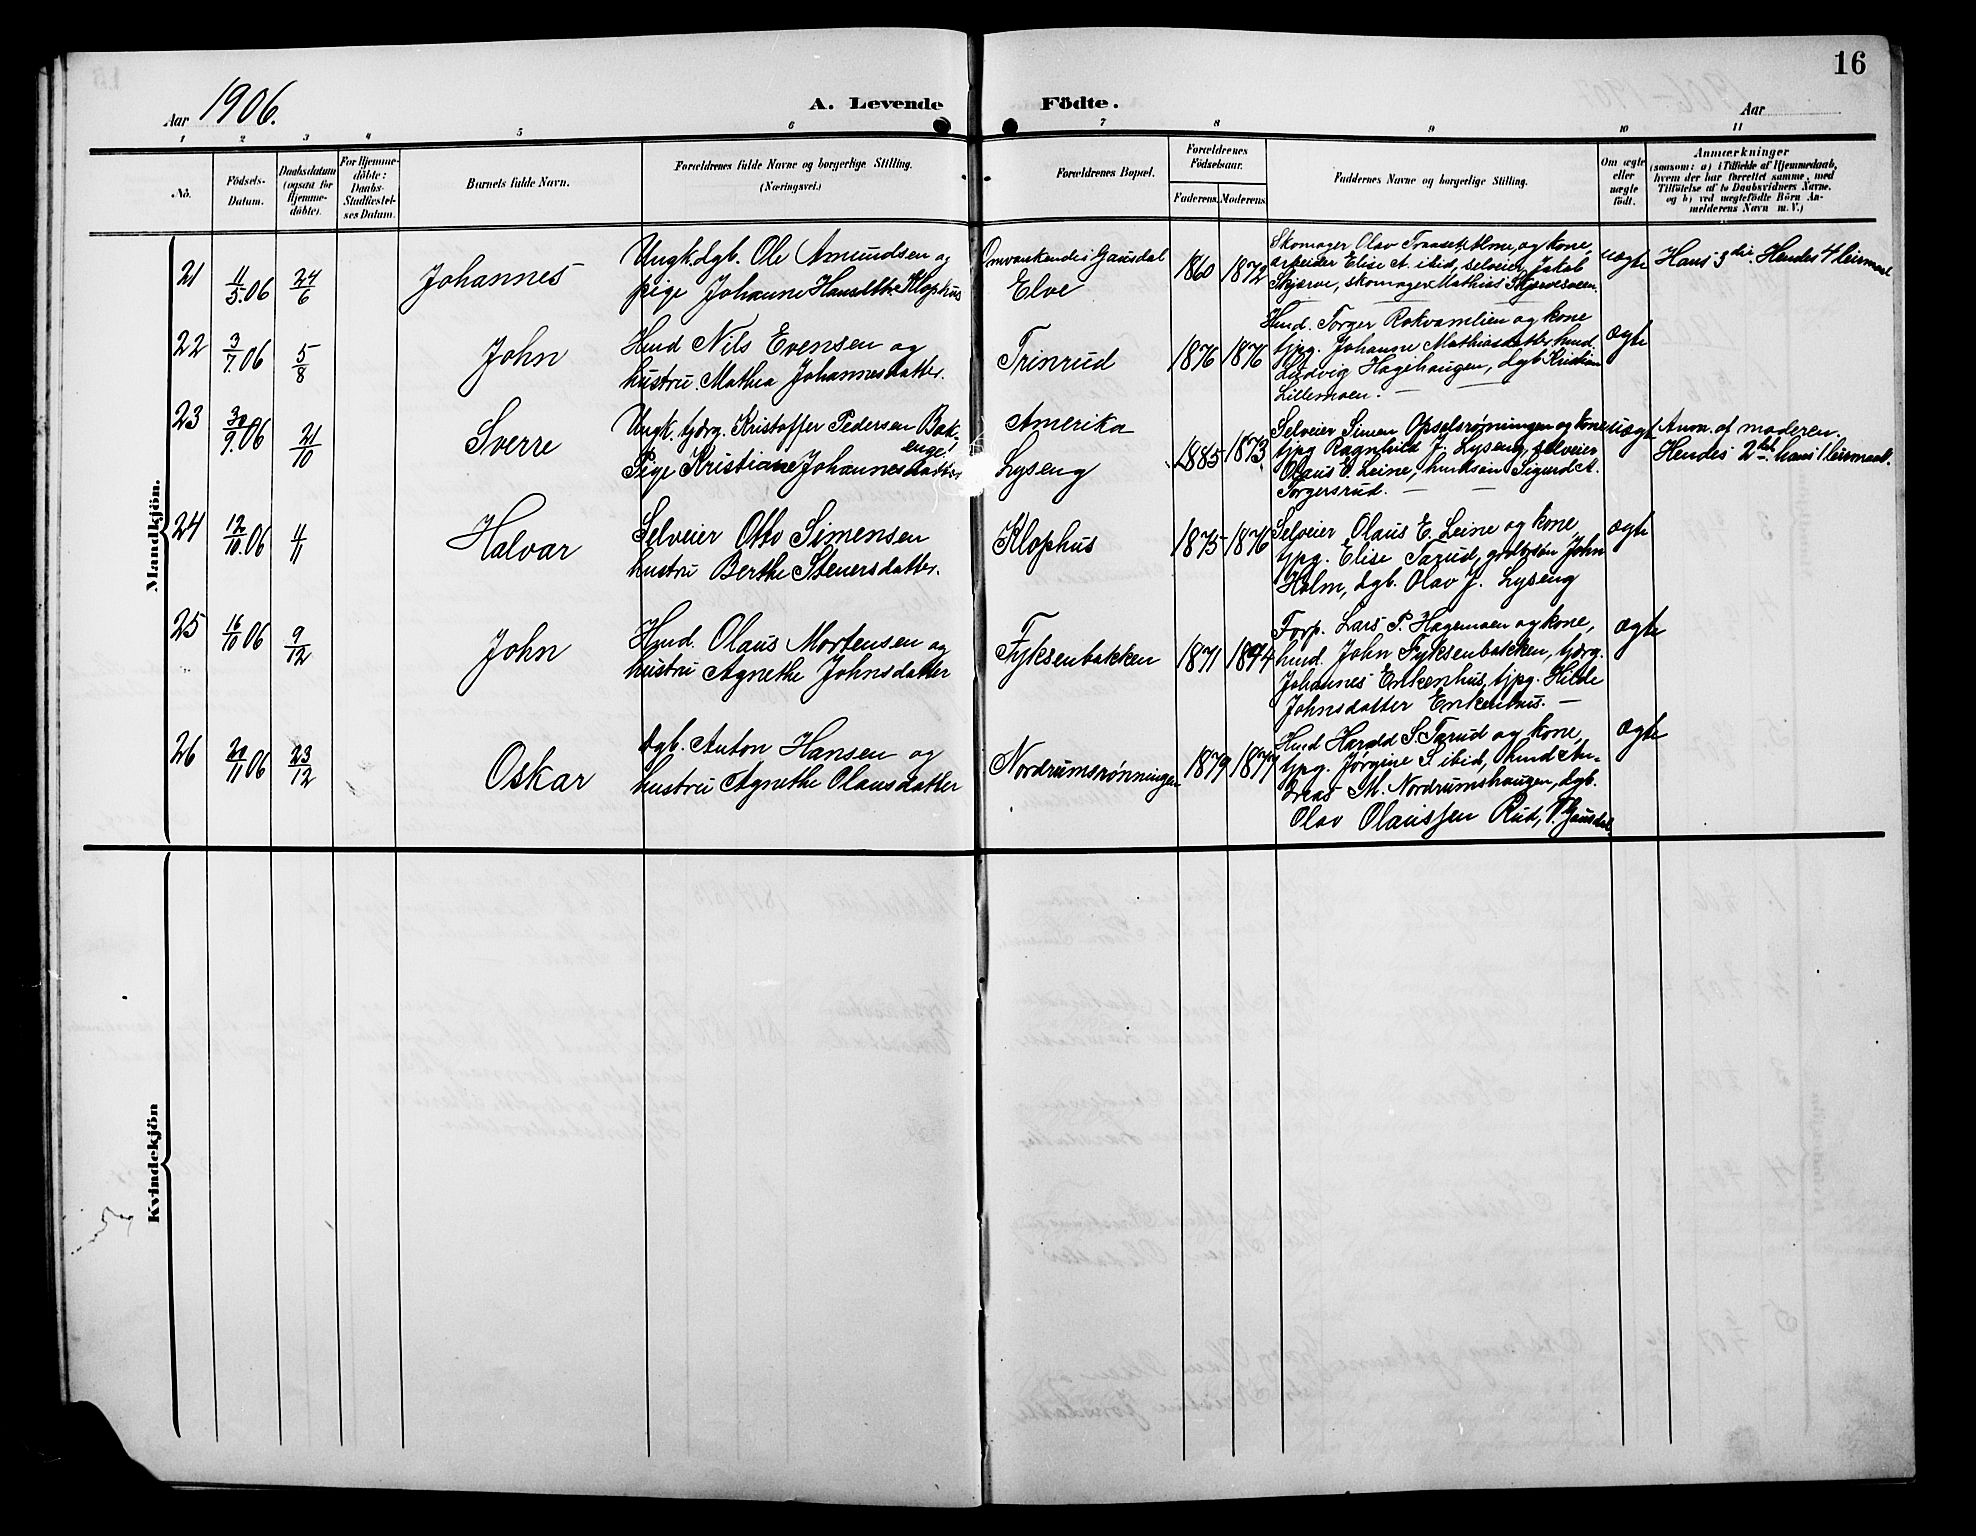 16
Aar 1906.
A. Levende Födte.
Aar
1 2 3 4 5 6 7 8 9 10 11
No.
Födsels-
Datum.
Daabsdatum
(ogsaa for
Hjemme-
döbte).
For Hjemme-
döbte:
Daabs-
Stadfæstel-
ses Datum.
Barnets fulde Navn.
Forældrenes fulde Navne og borgerlige Stilling.
(Næringsvei.)
Forældrenes Bopæl.
Forældrenes
Födselsaar.
Faderens. Moderens.
Faddernes Navne og borgerlige Stilling.
Om ægte
eller
uægte
födt.
Anmærkninger
(saasom: a) i Tilfælde af Hjemmedaab,
hvem der har forrettet samme, med
Tilföielse af to Daabsvidners Navne,
og b) ved uægtefödte Börn An-
melderens Navn m. V.)
Mandkjön.
21
11/5.06
24/6
Johannes
Ungk. dgb. Ole Amundsen og
pige Johanne Hansdtr. Klophus
Omvankende i Gausdal
Elve
1860 1872
Skomager Olav Traaset, Alme, og kone,
arbeider Elise A. ibid, selveier Jakob
Skjærve, skomager Mathias Skjærvesveen.
uægte
Hans 3die. Hendes 4 leiermaal
22
3/7.06
5/8
John
Hmd Nils Evensen og
hustru Mathea Johannesdatter.
Trinrud
1876 1876
Hmd. Torger Rokvamlien og kone
tjpg. Johanne Mathiasdatter, hmd.
Ludvig Hagehaugen, dgb. Kristian
Lillemoen. —
ægte
23
30/9.06
21/10
Sverre
Ungk. tjdrg. Kristoffer Pedersen Bak-
enge
Pige Kristiane Johannesdatter
Amerika
Lyseng
1885 1873
Selveier Simen Opselsrønningen og kone
tjpg Ragnhild J. Lyseng, selveier
Olaus E. Leine, hmdsøn Sigurd A.
Torgersrud. — —
uægte
Anm. af moderen.
Hendes 2det, hans 1 leiermaal.
24
12/10.06
4/11
Halvar
Selveier Otto Simensen
hustru Berthe Steuersdatter.
Klophus
1875 1876
Selveier Olaus E. Leine og kone
tjpg. Elise Tarud, grdbrsøn John
Holm, dgb. Olav J. Lyseng
ægte
25
16/10 06
9/12
John
Hmd. Olaus Mortensen og
hustru Agnethe Johnsdatter
Fyksenbakken
1871 1874
Forp. Lars P. Hagemoen og kone,
hmd. John Fyksenbakken, tjdrg.
Johannes Enkenhus, tjpg. Hilde
Johnsdatter Enkenhus. —
ægte
26
20/11 06
23/12
Oskar
Dgb. Anton Hansen og
hustru Agnethe Olausdatter
Nordrumsrønningen
1879 1877
Hmd Harald S. Tarud og kone,
tjpg. Jørgine S. ibid, hmd An-
dreas M. Nordrumshaugen, dgb.
Olav Olaussen Rud, V. Gausdal
ægte
Kvindekjön